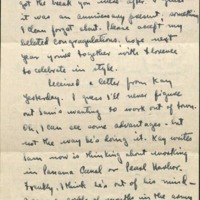 got the break you were after. I guess
it was an anniversary present, something
I clean forgot about. Please accept my
belated congratulations. Hope next
year you're together with Florence
to celebrate in style.
Received a letter from Kay
yesterday. I guess I'll never figure
out Sam's wanting to work out of town.
Oh, I can see some advantages - but
not the way he's doing it. Kay writes
Sam now is thinking about working
in Panama Canal or Pearl Harbor.
Frankly, I think he's out of his mind -
months in the